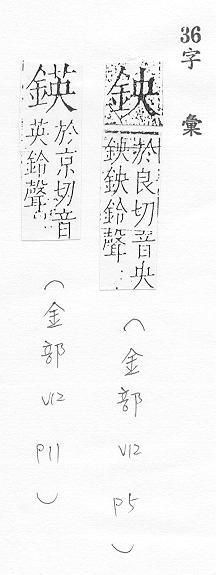 36
字彙
鉠
於良切音央
鉠鉠鈴聲⋯
(金部 V12 P5)
鍈
於京切音
英鈴聲⋯
(金部 V12 P11)